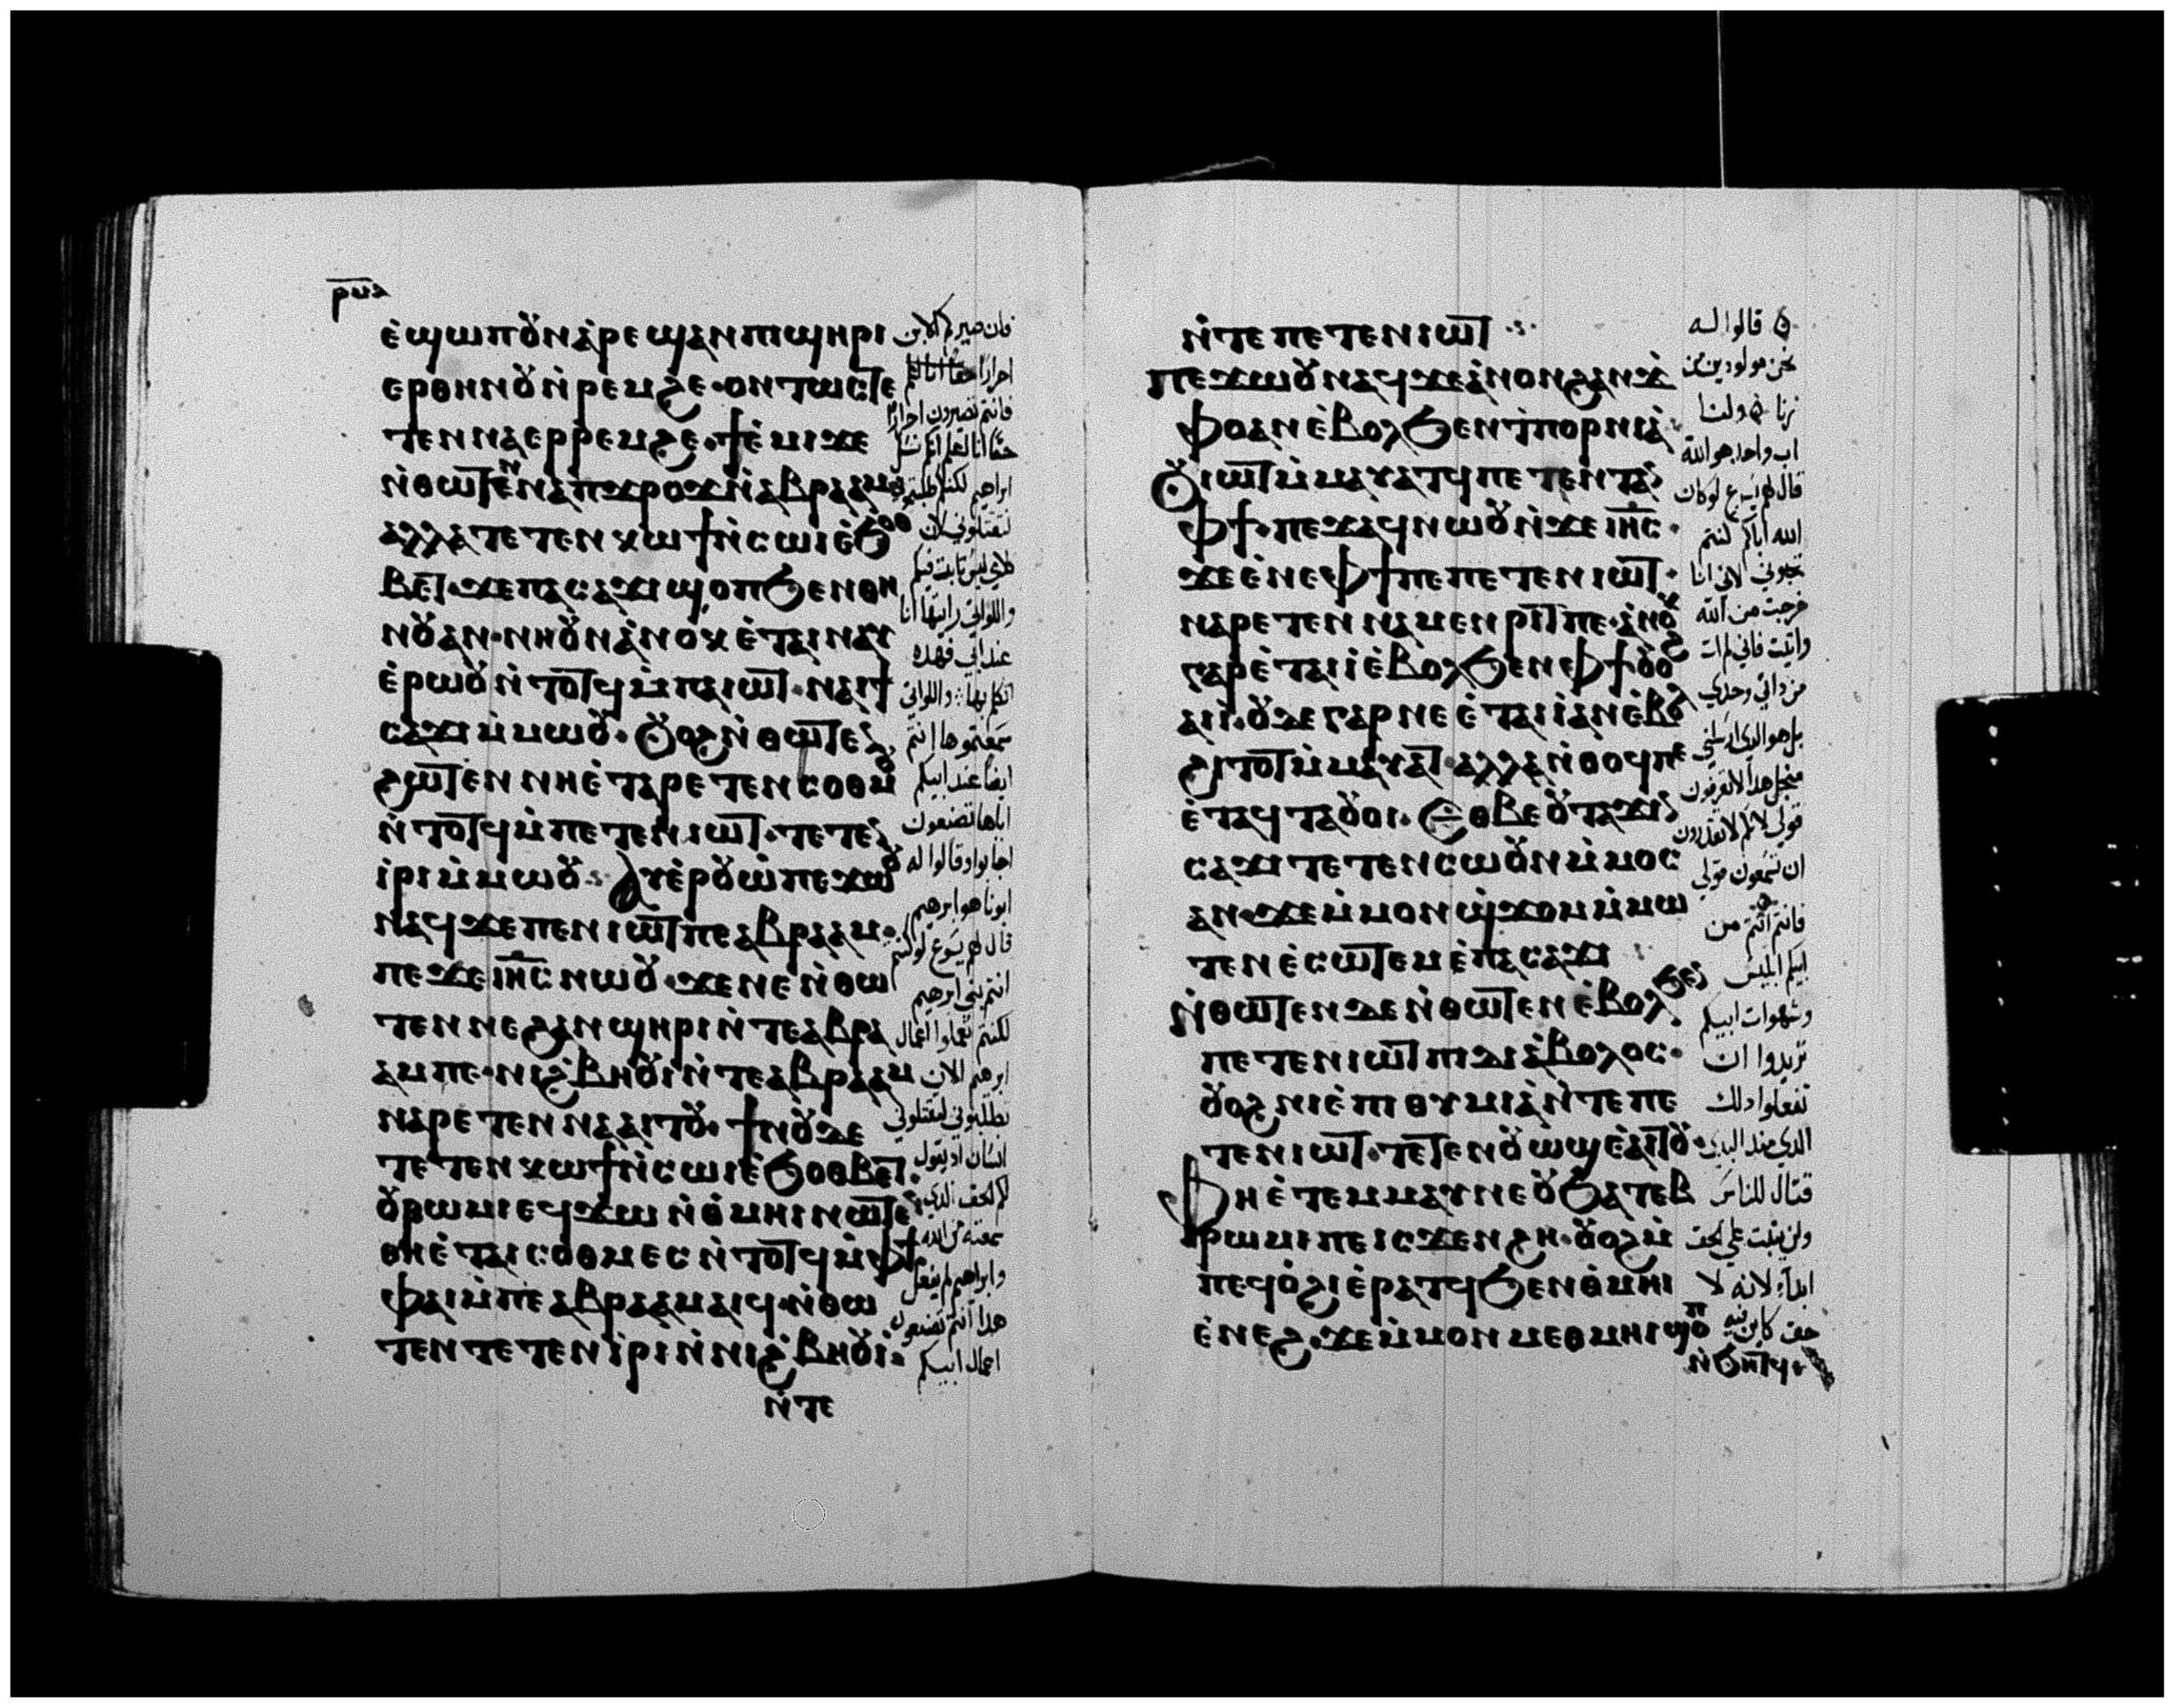 ⲣⲙⲁ
ⲉ̀ϣⲱⲡ ⲟⲩⲛ ⲁ̀ⲣⲉϣⲁⲛ ⲡⲓϣⲏⲣⲓ
ⲉⲣ ⲑⲏⲛⲟⲩ ⲛ̀ⲣⲉⲙϩⲉ · ⲟⲛⲧⲱⲥ ⲧⲉ
ⲧⲉⲛⲛⲁⲉⲣⲣⲉⲙϩⲉ · ϯⲉ̀ⲙⲓ ϫⲉ
ⲛ̀ⲑⲱⲧⲉⲛ ⲛⲁ ⲡϫⲣⲟϫ ⲛ̀ⲁⲃⲣⲁⲁⲙ
ⲁⲗⲗⲁ ⲧⲉⲧⲉⲛⲕⲱϯ ⲛ̀ⲥⲱⲓ ⲉ̀ϧⲟⲑ
ⲃⲉⲧ · ϫⲉ ⲡⲁⲥⲁϫⲓ ϣⲟⲡ ϧⲉⲛ ⲑⲏ
ⲛⲟⲩ ⲁⲛ · ⲛⲏ ⲟⲩⲛ ⲁ̀ⲛⲟⲕ ⲉ̀ⲧⲁⲓⲛⲁⲩ
ⲉ̀ⲣⲱⲟⲩ ⲛ̀ⲧⲟⲧϥ ⲙ̀ⲡⲁⲓⲱⲧ · ⲛⲁⲓ ϯ
ⲥⲁϫⲓ ⲙ̀ⲙⲱⲟⲩ · ⲟⲩⲟϩ ⲛ̀ⲑⲱⲧⲉⲛ
ϩⲱⲧⲉⲛ ⲛⲏ ⲉ̀ⲧⲁⲣⲉⲧⲉⲛⲥⲟⲑⲙⲟⲩ
ⲛ̀ⲧⲟⲧϥ ⲙ̀ⲡⲉⲧⲉⲛⲓⲱⲧ · ⲧⲉⲧⲉⲛ
ⲓⲣⲓ ⲙ̀ⲙⲱⲟⲩ · ⲁⲩⲉ̀ⲣⲟⲩⲱ̀ ⲡⲉϫⲱⲟⲩ
ⲛⲁϥ ϫⲉ ⲡⲉⲛⲓⲱⲧ ⲡⲉ ⲁⲃⲣⲁⲁⲙ ·
ⲡⲉϫⲉ ⲓⲏ̅ⲥ̅ ⲛⲱⲟⲩ · ϫⲉ ⲛⲉ ⲛ̀ⲑⲱ
ⲧⲉⲛ ⲛⲉ ϩⲁⲛϣⲏⲣⲓ ⲛ̀ⲧⲉ ⲁⲃⲣⲁ
ⲁⲙ ⲡⲉ · ⲛⲓϩ̀ⲃⲏⲟⲩⲓ ⲛ̀ⲧⲉ ⲁⲃⲣⲁⲁⲙ
ⲛⲁⲣⲉⲧⲉⲛⲛⲁⲁⲓⲧⲟⲩ · ϯⲛⲟⲩ ⲇⲉ
ⲧⲉⲧⲉⲛⲕⲱϯ ⲛ̀ⲥⲱⲓ ⲉ̀ϧⲟⲑⲃⲉⲧ ·
ⲟⲩⲣⲱⲙⲓ ⲉϥϫⲱ ⲛ̀ⲑ̀ⲙⲏⲓ ⲛⲱⲧⲉⲛ
ⲑⲏ ⲉ̀ⲧⲁⲓⲥⲟⲑⲙⲉⲥ ⲛ̀ⲧⲟⲧϥ ⲙ̀ⲫϯ
ⲫⲁⲓ ⲙ̀ⲡⲉ ⲁⲃⲣⲁⲁⲙ ⲁⲓϥ · ⲛ̀ⲑⲱ
ⲧⲉⲛ ⲧⲉⲧⲉⲛⲓⲣⲓ ⲛ̀ⲛⲓϩ̀ⲃⲏⲟⲩⲓ ·
ⲛ̀ⲧⲉ
فان صيركم الابن
احرارًا حقًا انا
فانتم تصيرون احرارًا
حقًا انا اعلم انكم نسل
ابراهيم لكنكم طلبتم
لتقتلوني لان
كلامي ليس ثابت فيكم
واللواتي رايتها انا
عند ابي فهذه
اتكلم بها · واللواتي
سمعتموها انتم
ايضًا عند ابيكم
اياها تصنعون
اجابوا وقالوا له
ابونا هو ابرهيم
قال لهم يسوع لو كنتم
انتم بني ابرهيم
لكنتم تعملوا اعمال
ابرهيم الان
تطلبوني لتقتلوني
انسان اذ يقول
لكم الحق الذي
سمعته من الله
وابراهيم لم يفعل
هذا انتم تصنعون
اعمال ابيكم
ⲛ̀ⲧⲉ ⲡⲉⲧⲉⲛⲓⲱⲧ ·
ⲡⲉϫⲱⲟⲩ ⲛⲁϥ ϫⲉ ⲁ̀ⲛⲟⲛ ϩⲁⲛϫ̀
ⲫⲟ ⲁⲛ ⲉ̀ⲃⲟⲗ ϧⲉⲛ ϯⲡⲟⲣⲛⲓⲁ̀
ⲟⲩⲓⲱⲧ ⲙ̀ⲙⲁⲩⲁⲧϥ ⲡⲉⲧⲉⲛⲧⲁⲛ
ⲫϯ · ⲡⲉϫⲁϥ ⲛⲱⲟⲩ ⲛ̀ϫⲉ ⲓⲏ̅ⲥ̅ ·
ϫⲉ ⲉ̀ⲛⲉ ⲫϯ ⲡⲉ ⲡⲉⲧⲉⲛⲓⲱⲧ ·
ⲛⲁⲣⲉⲧⲉⲛⲛⲁⲙⲉⲛⲣⲓⲧ ⲡⲉ · ⲁ̀ⲛⲟⲕ
ⲅⲁⲣ ⲉ̀ⲧⲁⲓⲓ̀ ⲉ̀ⲃⲟⲗ ϧⲉⲛ ⲫϯ ⲟⲩⲟϩ
ⲁⲓⲓ̀ · ⲟⲩⲇⲉ ⲅⲁⲣ ⲛⲉ ⲉ̀ⲧⲁⲓⲓ̀ ⲁⲛ ⲉ̀ⲃⲟⲗ
ϩⲓⲧⲟⲧ ⲙ̀ⲙⲁⲩⲁⲧ · ⲁⲗⲗⲁ ⲛ̀ⲑⲟϥ ⲡⲉ
ⲉ̀ⲧⲁϥⲧⲁⲟⲩⲟⲓ · ⲉⲑⲃⲉⲟⲩ ⲧⲁϫⲓⲛ
ⲥⲁϫⲓ ⲧⲉⲧⲉⲛⲥⲱⲟⲩⲛ ⲙ̀ⲙⲟⲥ
ⲁⲛ · ϫⲉ ⲙ̀ⲙⲟⲛ ϣ̀ϫⲟⲙ ⲙ̀ⲙⲱ
ⲧⲉⲛ ⲉ̀ⲥⲱⲧⲉⲙ ⲉ̀ⲡⲁⲥⲁϫⲓ
ⲛ̀ⲑⲱⲧⲉⲛ ⲇⲉ ⲛ̀ⲑⲱⲧⲉⲛ ⲉ̀ⲃⲟⲗ ϧⲉⲛ
ⲡⲉⲧⲉⲛⲓⲱⲧ ⲡⲓⲇⲓⲁ̀ⲃⲟⲗⲟⲥ ·
ⲟⲩⲟϩ ⲛⲓⲉ̀ⲡⲓⲑⲩⲙⲓⲁ̀ ⲛ̀ⲧⲉ ⲡⲉ
ⲧⲉⲛⲓⲱⲧ · ⲧⲉⲧⲉⲛⲟⲩⲱϣ ⲉ̀ⲁⲓⲧⲟⲩ ·
ⲫⲏ ⲉ̀ⲧⲉⲙⲙⲁⲩ ⲛⲉ ⲟⲩϧⲁⲧⲉⲃ
ⲣⲱⲙⲓ ⲡⲉ ⲓⲥϫⲉⲛ ϩⲏ · ⲟⲩⲟϩ ⲙ̀
ⲡⲉϥⲟ̀ϩⲓ ⲉ̀ⲣⲁⲧϥ ϧⲉⲛ ⲑ̀ⲙⲏⲓ
ⲉ̀ⲛⲉϩ · ϫⲉ ⲙ̀ⲙⲟⲛ ⲙⲉⲑⲙⲏⲓ ϣⲟⲡ
ⲛ̀ϧⲏⲧϥ ·
قالوا له
نحن مولودين من
زنا ولنا
اب واحد هو الله
قال لهم يسوع لو كان
الله اباكم كنتم
تحبوني لاني انا
خرجت من الله
واتيت فاني لم ات
من ذاتي وحدي
بل هو الذي ارسلني
من اجل هذا لا تعرفون
قولي لانكم لا تقدرون
ان تسمعون قولي
فانتم انتم من
ابيكم ابليس
وشهوات ابيكم
تريدوا ان
تفعلوا ذلك
الذي منذ البدي
قتال للناس
ولن يثبت على الحق
ابدًا لانه لا
حق كاين فيه